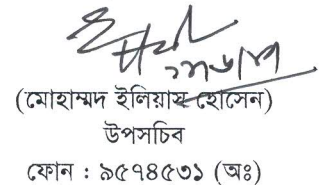 (মোহাম্মদ ইলিয়াস হোসেন)
উপসচিব
ফোন : ৯৫৭৪৫৩১ (অঃ)